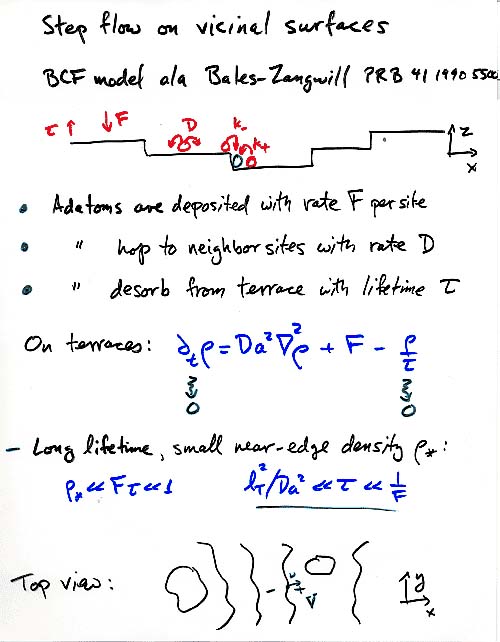 Step flow on vicinal surfaces
BCF model ala Bales-Zangwill PRB 41 1990 5500
τ ↑ ↓ F D k- k+ z x
• Adatoms are deposited with rate F per site
• " hop to neighbor sites with rate D
• " desorb from terrace with lifetime τ
On terraces: ∂tρ = Da²∇²ρ + F - ρ/τ
0 0
- Long lifetime, small near-edge density ρ*:
ρ* << Fτ << 1 l_T²/Da² << τ << 1/F
Top view: - + v y x